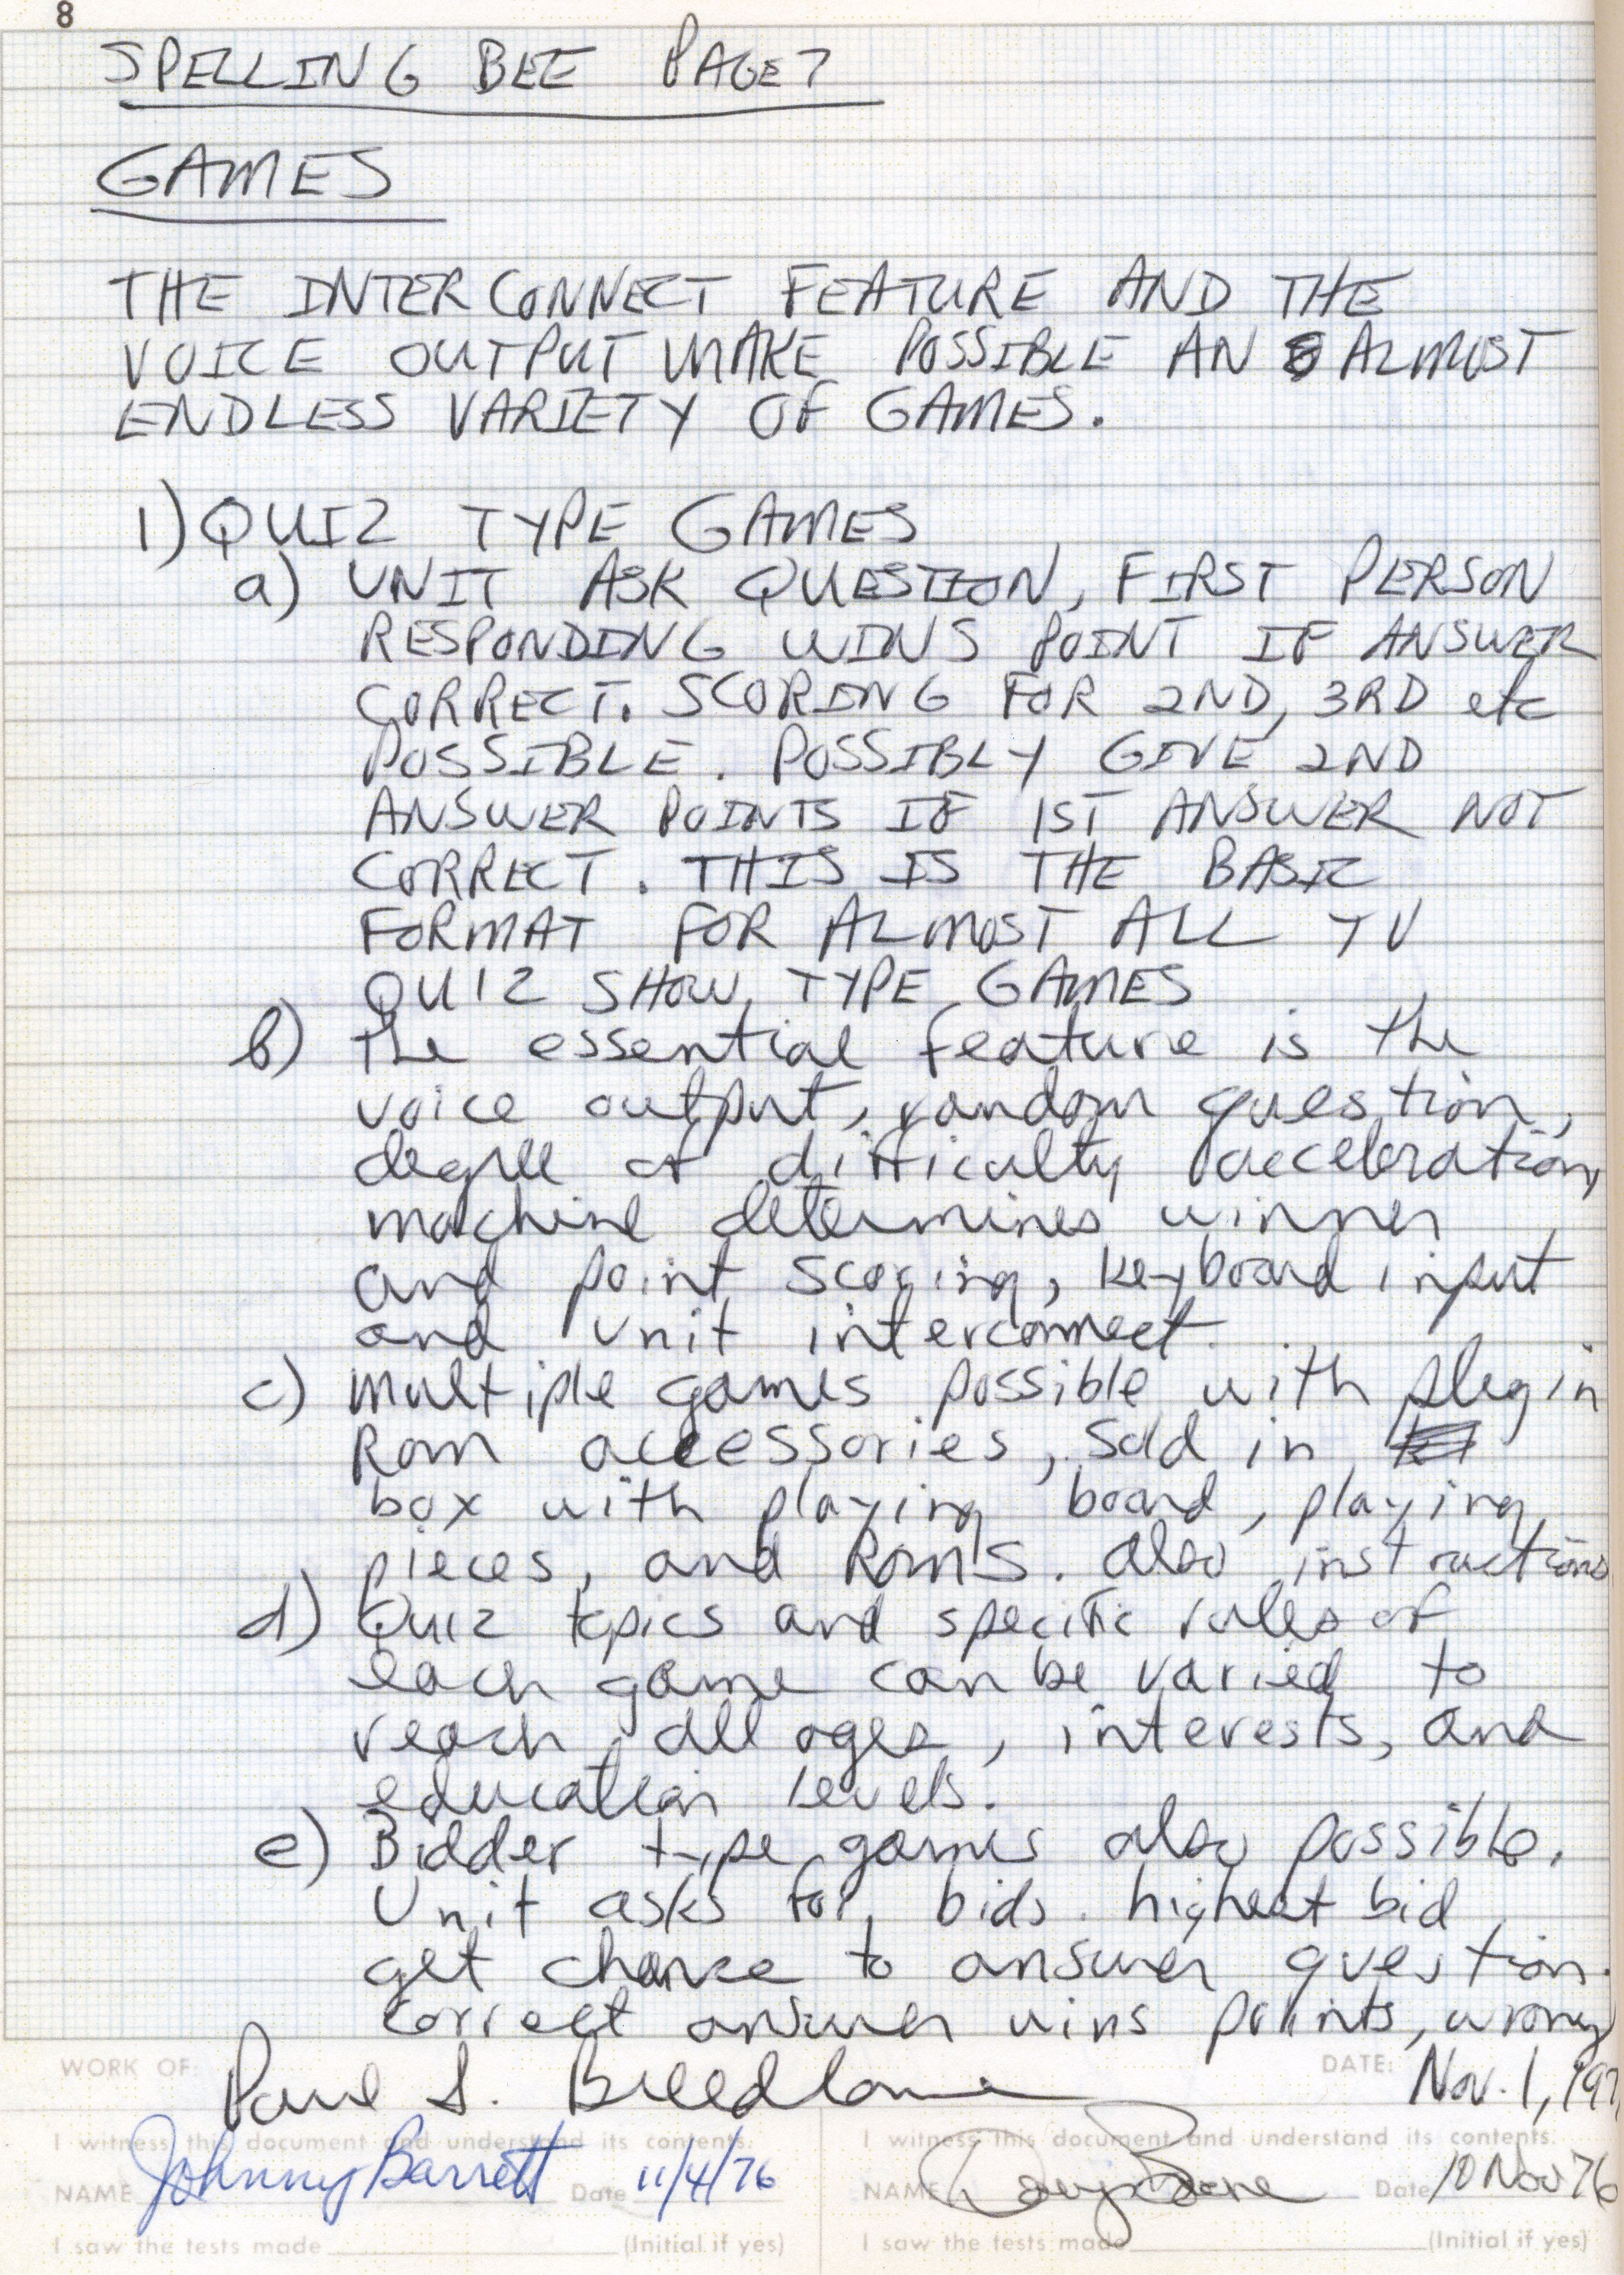 8
SPELLING BEE PAGE 7
GAMES
THE INTERCONNECT FEATURE AND THE
VOICE OUTPUT MAKE POSSIBLE AN ALMOST
ENDLESS VARIETY OF GAMES.
1) QUIZ TYPE GAMES
a) UNIT ASK QUESTION, FIRST PERSON
RESPONDING WINS POINT IF ANSWER
CORRECT. SCORING FOR 2ND, 3RD etc
POSSIBLE. POSSIBLY GIVE 2ND
ANSWER POINTS IF 1ST ANSWER NOT
CORRECT. THIS IS THE BASIC
FORMAT FOR ALMOST ALL TV
QUIZ SHOW TYPE GAMES
b) The essential feature is the
voice output, random question,
degree of difficulty acceleration,
machine determines winner
and point scoring, keyboard input
and unit interconnect.
c) Multiple games possible with plug in
Rom accessories, sold in
box with playing board, playing
pieces, and Roms. Also instructions
d) Quiz topics and specific rules of
each game can be varied to
reach all ages, interests, and
education levels.
e) Bidder type games also possible.
Unit asks for bids. highest bid
get chance to answer question.
Correct answer wins points, wrong
WORK OF: Paul S. Breedlove DATE: Nov. 1, 197
I witness this document and understand its contents. I witness this document and understand its contents.
NAME Johnny Barrett Date 11/4/76 NAME Date 10 Nov 76
I saw the tests made (Initial if yes) I saw the tests made (Initial if yes)